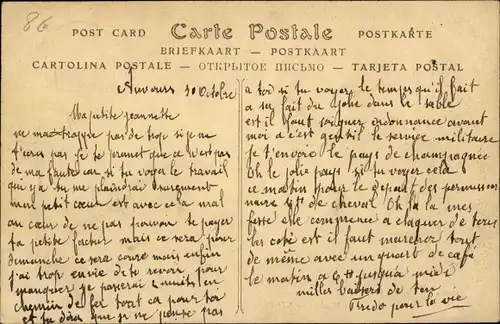 86
POST CARD Carte Postale POSTKARTE
BRIEFKAART — POSTKAART
CARTOLINA POSTALE — ОТКРЫТОЕ ПИСЬМО — TARJETA POSTAL
Auvours 30 Octobre
Ma petite jeannette
ne pas de trop si je ne
t'ecris pas je te promet que ce n'est pas
de ma faute car si tu voyer le travail
qui y a tu me plaindrai surement
mon petit cœur est avec ça mal
au cœur de ne pas pouvoir te payer
ta petite mais ce sera pour
dimanche ce sera mais enfin
j'ai trop envie de te revoir pour
manquer je passerai 2 nuits en
chemin de fer tout ça pour toi
et tu dira que je ne pense pas
a toi si tu voyer le temps qu'il fait
a su fait du jolie dans le sable
et il faut soigner ordonnance avant
moi a c'est gentil le service militaire
je t'envoie le pays de champagnée
Oh le jolie pays si tu voyer cela
ce matin pour le départ des permission
naire de cheval Oh la la mes
fesse elle commence a claquer de
coté est il faut marcher tout
de même avec un quart de café
le matin a 6 H jusqua midi
milles baisers de ton
Fredo pour la vie